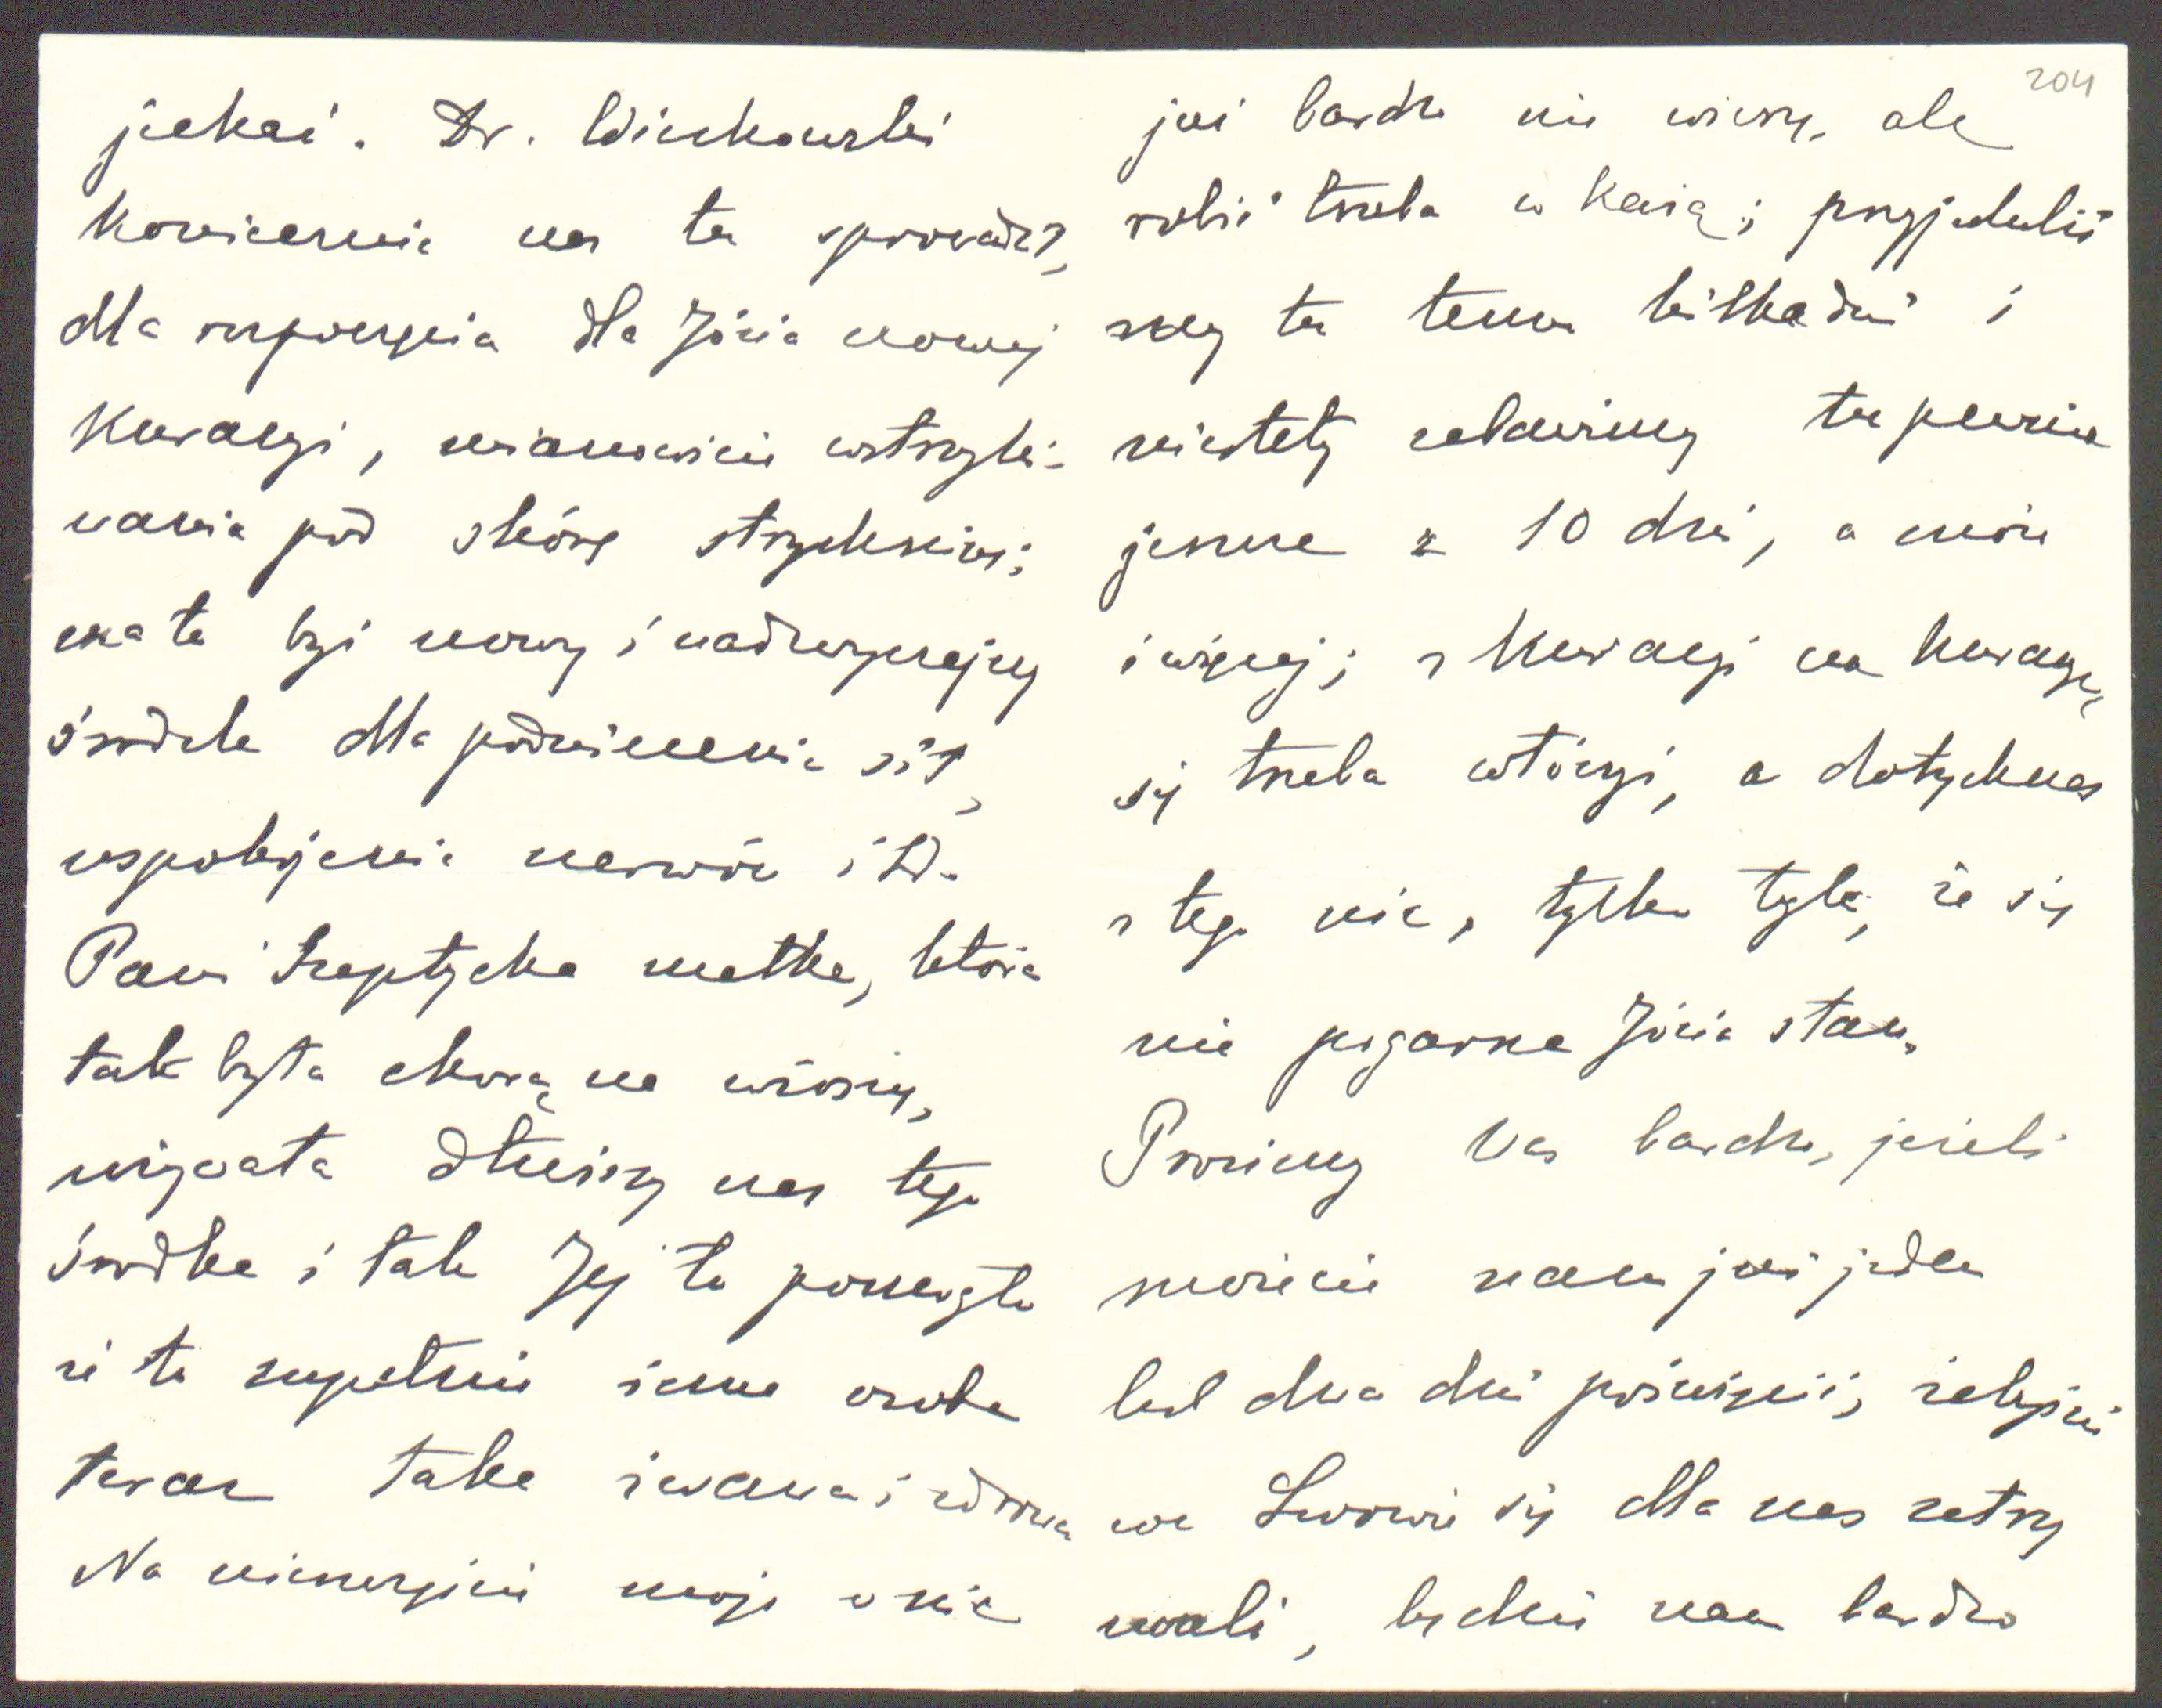 jechać. Dr. Wiczkowski
koniecznie nas tu sprowadził,
dla rozpoczęcia dla Józia nowej
kuracyi, mianowicie wstrzyki-
wania pod skórę strychniny;
ma to być nowy i nadzwyczajny
środek dla podniesienia sił,
uspokojenia nerwów itd.
Pani Szeptycka matka, która
tak była chorą na wiosnę,
używała dłuższy czas tego
środka i tak Jej to pomogło
że to zupełnie inna osoba
teraz taka żwawa i zdrowa
Na nieszczęście moje w nic
204
już bardzo nie wierzę, ale
robić trzeba co każą; przyjechaliś
my tu temu kilka dni i
niestety zabawimy tu pewnie
jeszcze z 10 dni, a może
i więcej; z kuracyi na kuracyę
się trzeba włóczyć, a dotychczas
z tego nic, tylko tyle, że się
nie pogarsza Józia stan.
Prosimy Was bardzo, jeżeli
możecie nam już jeden
lub dwa dni poświęcić, żebyście
we Lwowie się dla nas zatrzy
mali, będzie nam bardzo